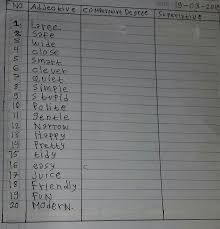 NO Adjective Comparative Degree Superlative 19-03-201
1 Large
2 Safe
3 wide
4 close
5 smart
6 clever
7 Quiet
8 Simple
9 Stupid
10 Polite
11 gentle
12 Narrow
13 Happy
14 Pretty
15 tidy
16 easy c
17 Juice
18 Friendly
19 FUN
20 Modern.